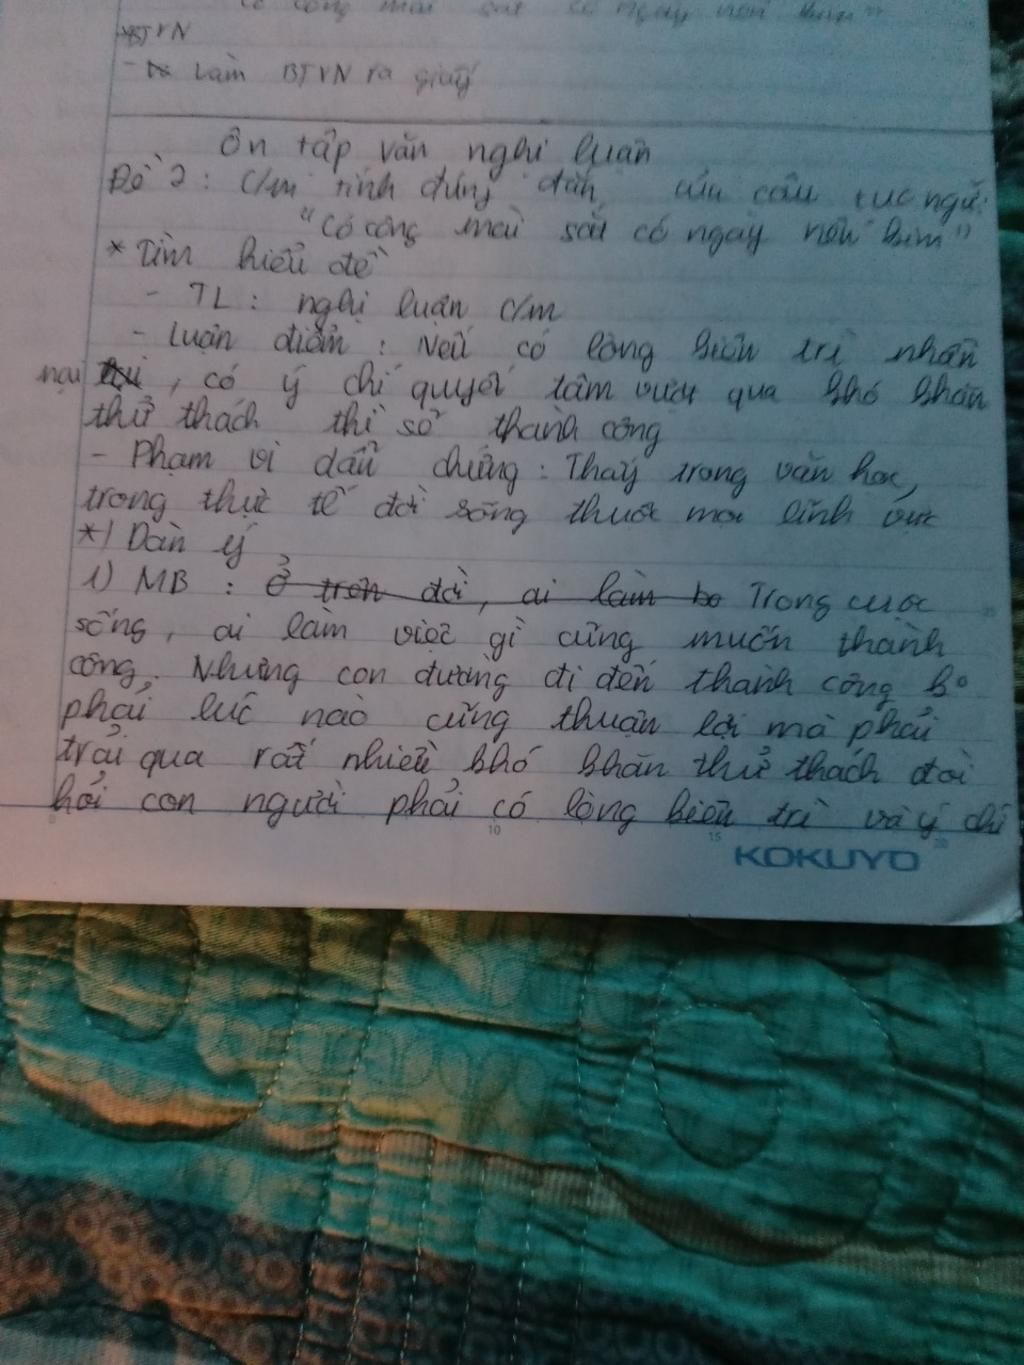 có công mài sắt có ngày nên kim"
*BTVN
- Làm BTVN ra giấy
Ôn tập văn nghị luận
Đề 2: C/m tính đúng đắn của câu tục ngữ:
"Có công mài sắt có ngày nên kim"
* Tìm hiểu đề
- TL: nghị luận c/m
- Luận điểm: Nếu có lòng kiên trì nhẫn
nại, có ý chí quyết tâm vượt qua khó khăn
thử thách thì sẽ thành công
- Phạm vi dẫn chứng: Thấy trong văn học,
trong thực tế đời sống thuộc mọi lĩnh vực
*) Dàn ý
1) MB: Ở trên đời, ai làm ko Trong cuộc
sống, ai làm việc gì cũng muốn thành
công. Nhưng con đường đi đến thành công ko
phải lúc nào cũng thuận lợi mà phải
trải qua rất nhiều khó khăn thử thách đòi
hỏi con người phải có lòng kiên trì và ý chí
10 15 20
KOKUYO